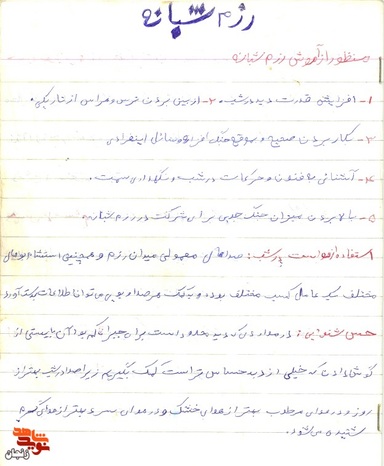 رزم شبانه
منظور از آموزش رزم شبانه
۱- افزایش قدرت دید در شب. ۲- از بین بردن ترس و هراس از تاریکی.
۳- بکار بردن صحیح و بموقع جنگ افزار و وسائل انفرادی
۴- آشنائی با فنون و حرکات در شب و نگهداری سمت.
۵- بالا بردن میزان جنگ جویی برای شرکت در رزم شبانه.
استفاده از حواس در شب: صداهای معمولی میدان رزم و همچنین استشمام بوهای
مختلف یک عامل کسب مختلف بوده و به کمک هر صدا و بویی می‌توان اطلاعات بدست آورد
حس شنوایی: در مواردی که دید محدود است برای جبران کم بود آن بایستی از
گوش دادن که خیلی از دید حساس تر است کمک بگیریم زیرا صدا در شب بهتر از
روز و در هوای مرطوب بهتر از هوای خشک و در هوای سرد بهتر از هوای گرم
شنیده می‌شود.
نوید شاهد